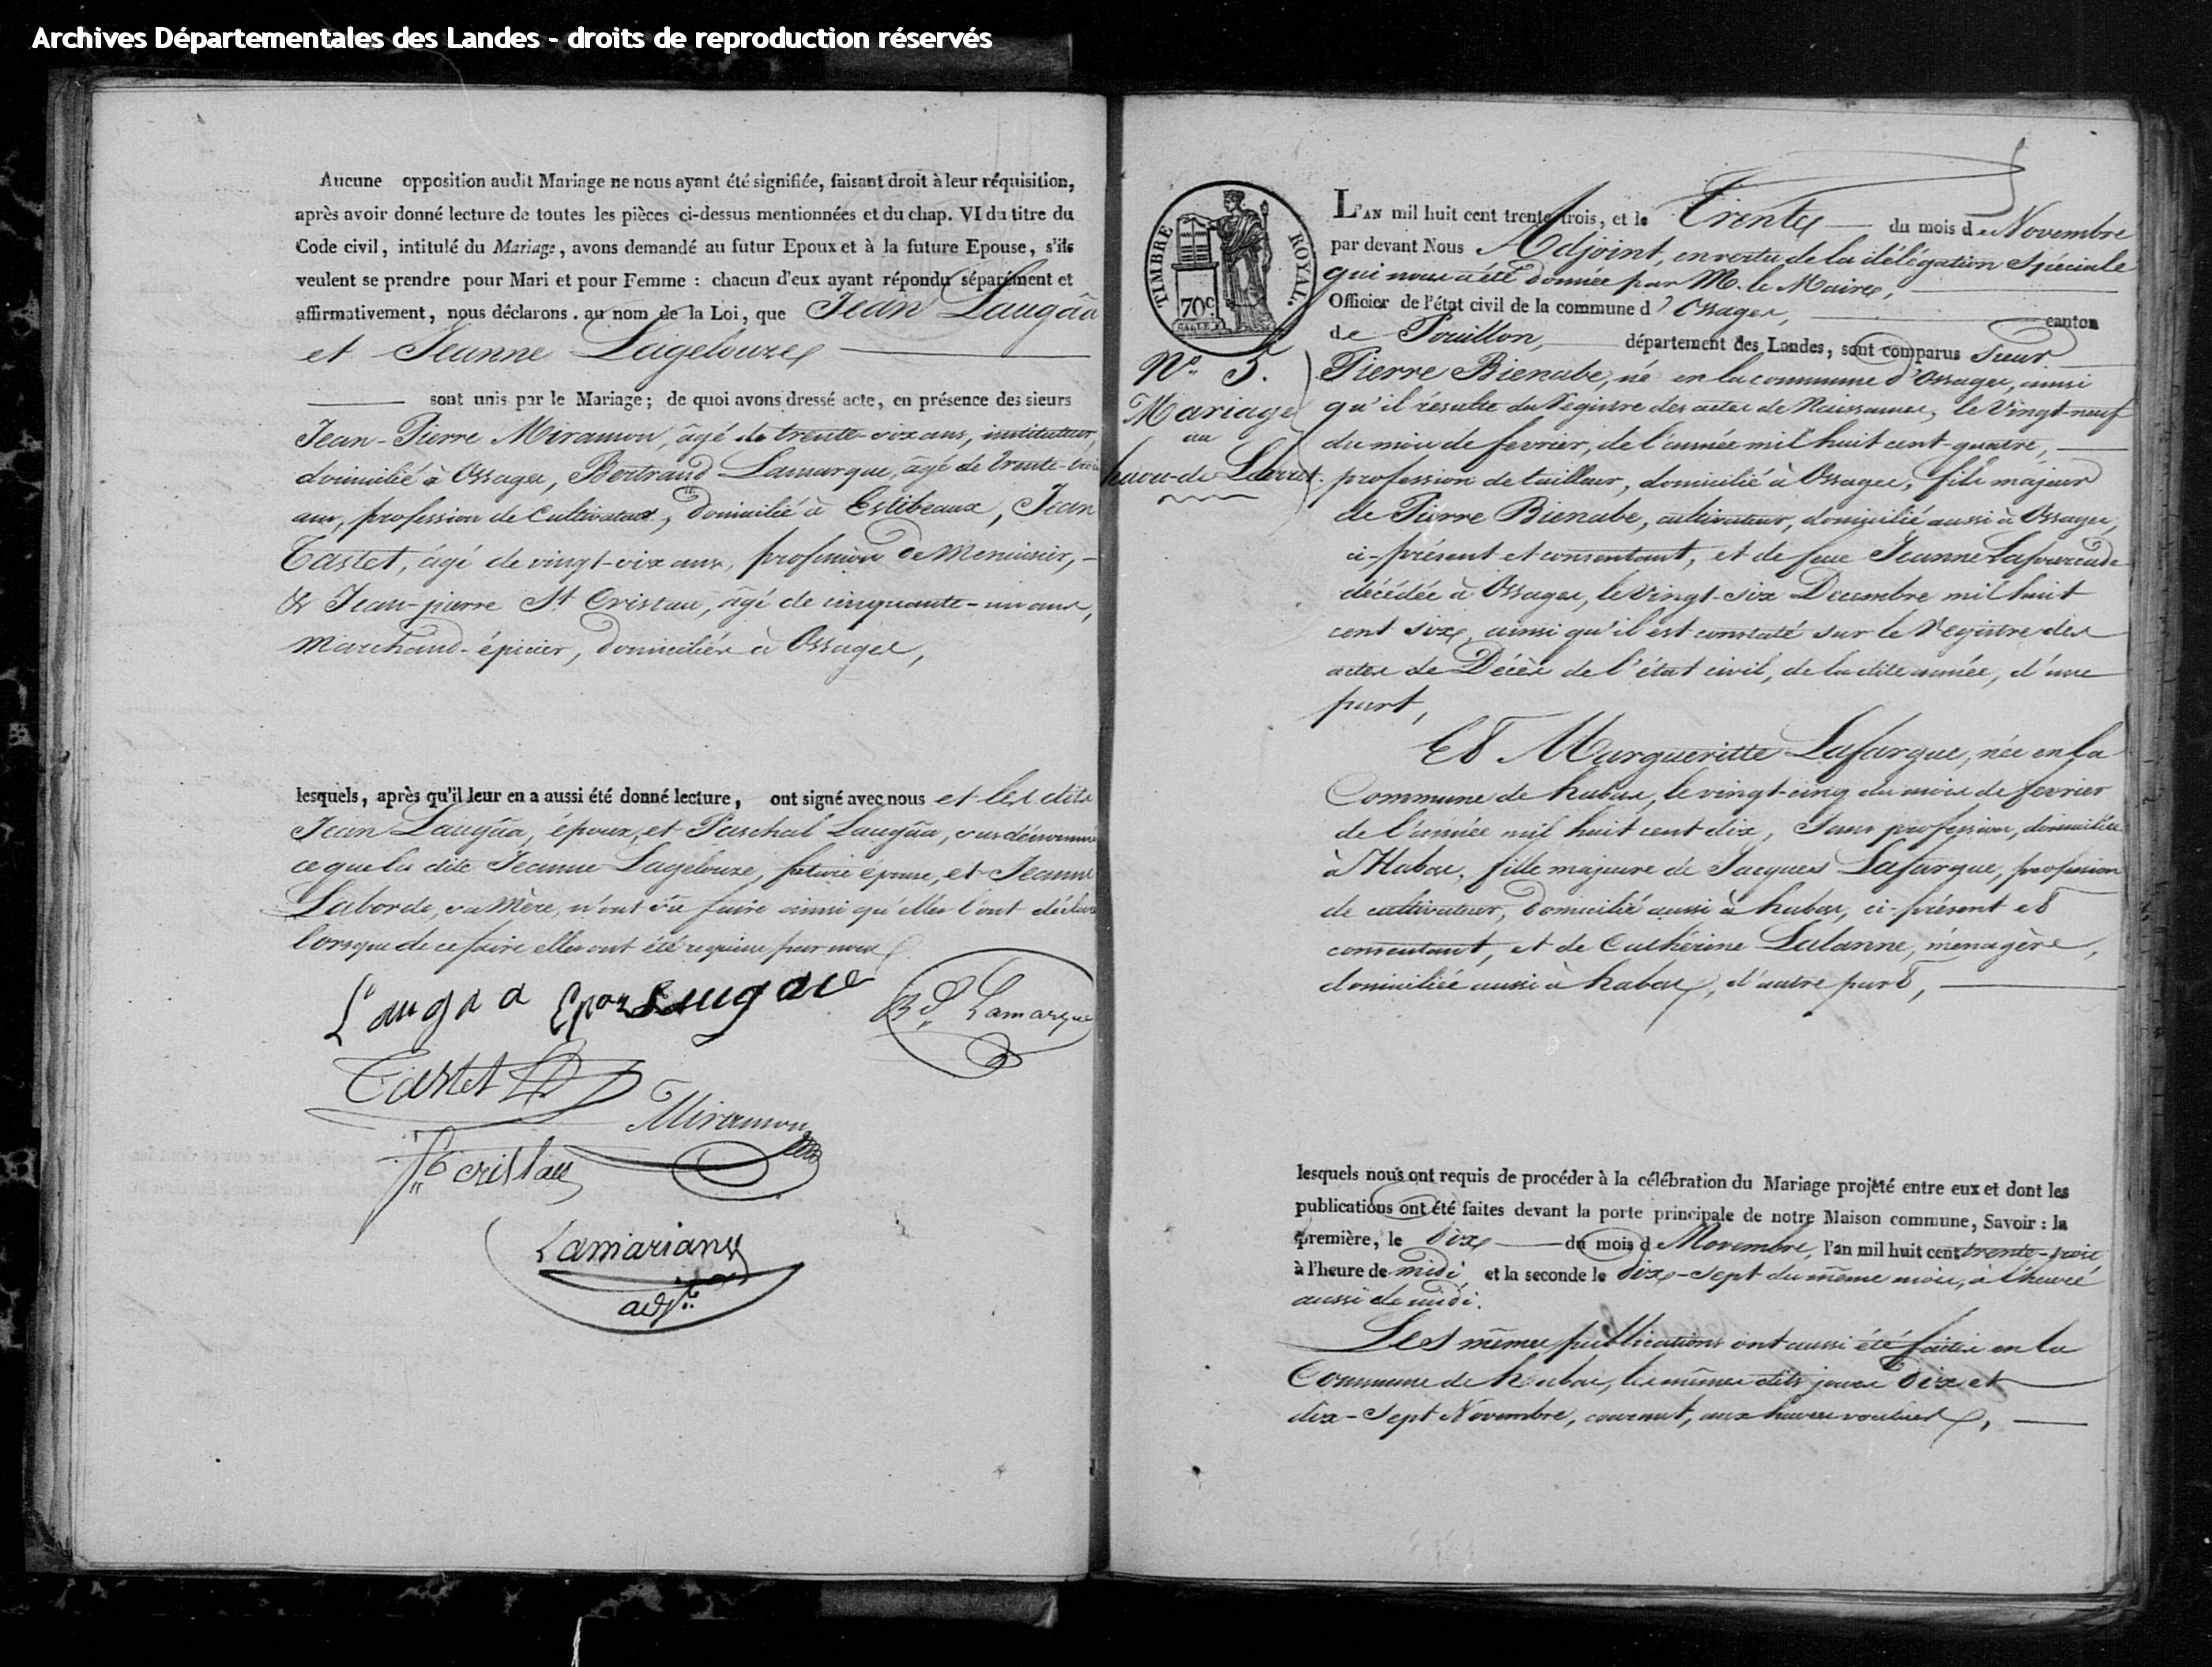 Archives Départementales des Landes - droits de reproduction réservés
Aucune opposition audit Mariage ne nous ayant été signifiée, faisant droit à leur réquisition,
après avoir donné lecture de toutes les pièces ci-dessus mentionnées et du chap. VI du titre du
Code civil, intitulé du Mariage, avons demandé au futur Epoux et à la future Epouse, s'ils
veulent se prendre pour Mari et pour Femme : chacun d'eux ayant répondu séparément et
affirmativement, nous déclarons. au nom de la Loi, que Jean Laugâa
et Jeanne Lagelouze
sont unis par le Mariage; de quoi avons dressé acte, en présence des sieurs
Jean-Pierre Miramon, âgé de trente-six ans, instituteur,
domicilié à Ossages, Bertrand Lamarque, âgé de trente-trois
ans, profession de Cultivateur, domicilié à Estibeaux, Jean
Tastet, âgé de vingt-six ans, profession de Menuisier, -
& Jean-pierre St Cristau, âgé de cinquante-un ans,
Marchand-épicier, domiciliés à Ossages,
lesquels, après qu'il leur en a aussi été donné lecture, ont signé avec nous et les dits
Jean Laugâa, époux, et Paschal Laugâa, susdénommé
ce que la dite Jeanne Lagelouze, future épouse, et Jeanne
Laborde, sa Mère, n'ont su faire ainsi qu'elles l'ont déclaré
lorsque de ce faire elles ont été requises par nous
Laugaa Epoux Laugaa
Bd. Lamarque
Tastet
Miramon
St cristau
Lamarians
adjt.
TIMBRE ROYAL.
70c.
L'AN mil huit cent trente trois, et le Trente du mois de Novembre
par devant Nous Adjoint, en vertu de la délégation Spéciale
qui nous a été donnée par M. le Maire,
Officier de l'état civil de la commune d'Ossages, canton
de Pouillon, département des Landes, sont comparus Sieur
No. 5.
Mariage
au
Pierre Bienabe, né en la commune d'Ossages, ainsi
qu'il résulte du Registre des actes de Naissances, le Vingt-neuf
du mois de fevrier, de l'année mil huit cent quatre,
profession de tailleur, domicilié à Ossages, fils majeur
de Pierre Bienabe, cultivateur, domicilié aussi à Ossages,
ci-présent et consentant, et de feue Jeanne Lafourcade
décédée à Ossages, le Vingt-six Decembre mil huit
cent six, ainsi qu'il est constaté sur le Registre des
actes de Décès de l'état civil, de la dite année, d'une
part,
Et Margueritte Lafargue, née en la
Commune de habas, le vingt-cinq du mois de fevrier
de l'année mil huit cent dix, Sans profession, domiciliée
à Habas, fille majeure de Jacques Lafargue, profession
de cultivateur, domicilié aussi à habas, ci-présent et
consentant, et de Cathérine Lalanne, ménagère,
domiciliée aussi à habas, d'autre part,
lesquels nous ont requis de procéder à la célébration du Mariage projeté entre eux et dont les
publications ont été faites devant la porte principale de notre Maison commune, Savoir : la
première, le dix du mois de Novembre, l'an mil huit cent trente-trois
à l'heure de midi, et la seconde le dix-sept du même mois, à l'heure
aussi de midi.
Les mêmes publications ont aussi été faites en la
Commune de habas, les mêmes dits jours dix et
dix-sept Novembre, courant, aux heures voulues,